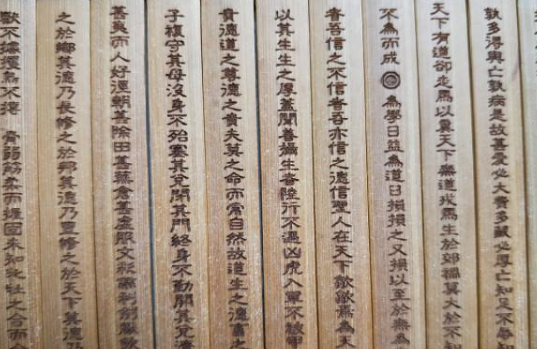 孰多得與亡孰病是故甚愛必大費多藏必厚亡知足不辱
天下有道卻走馬以糞天下無道戎馬生於郊禍莫大於不知
不為而成 為學日益為道日損損之又損以至於無為
者吾信之不信者吾亦信之德信聖人在天下歙歙為天
以其生生之厚蓋聞善攝生者陸行不遇兕虎入軍不被甲
貴德道之尊德之貴夫莫之命而常自然故道生之德畜之
子復守其母沒身不殆塞其兌閉其門終身不勤開其兌濟
甚夷而人好徑朝甚除田甚蕪倉甚虛服文綵帶利劍厭飲
之於鄉其德乃長修之於邦其德乃豐修之於天下其德乃
獸不據攫鳥不搏 骨弱筋柔而握固未知牝牡之合而全